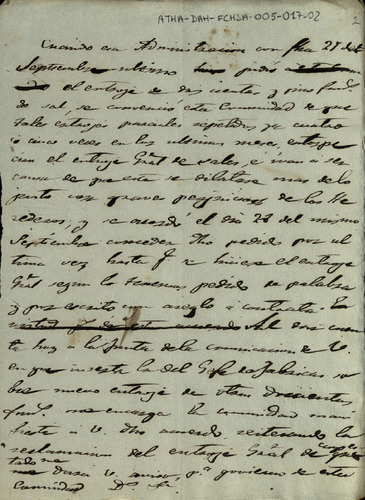 ATHA-DAH-FCHSA-005-017-02
2
Cuando esa Administracion con fha 21 de
Septiembre ultimo pidió
el entrojе de dos cientas y pico fan.s
de sal, se convenció esta Comunidad de que
tales entrojes parciales repetidos ya cuatro
o cinco veces en los ultimos meses, entorpe
cian el entroje Gral de sales, e ivan a ser
causa de que este se dilatase mas de lo
justo con grave perjuicio de los He
rederos, y se acordó el dia 24 del mismo
Septiembre conceder dho pedido por ul
tima vez hasta q.e se hiciese el entroje
Gral segun lo tenemos pedido de palabra
y por escrito con arreglo a contrata.
acuerdo Al dar cuen
ta hoy a la Junta de la comunicacion de V.
en que inserta la del Gefe de fabricas so
bre nuevo entroje de otras doscientas
fan.s me encarga la comunidad mani
fieste a V. dho acuerdo, reiterando la
reclamacion del entroje Gral de
me dara V. aviso p.a govierno de esta
Comunidad D.s